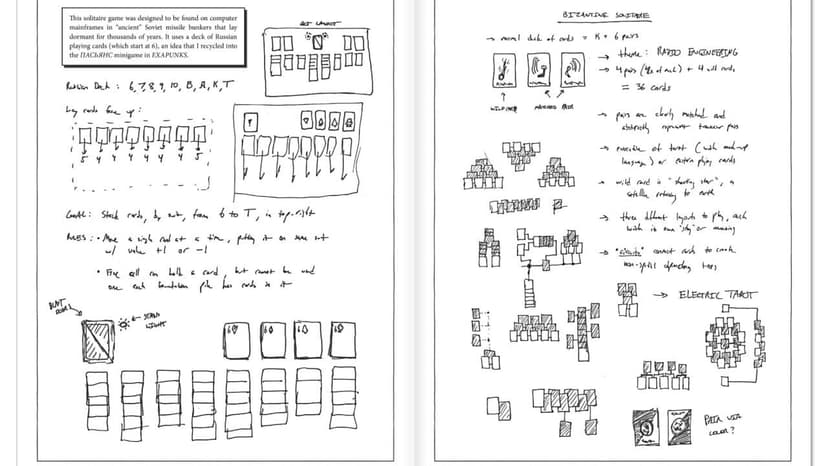 This solitaire game was designed to be found on computer
mainframes in "ancient" Soviet missile bunkers that lay
dormant for thousands of years. It uses a deck of Russian
playing cards (which start at 6), an idea that I recycled into
the ПАСЬЯНС minigame in EXAPUNKS.
Russian Deck: 6, 7, 8, 9, 10, В, Д, К, Т
Lay cards face up:
5 4 4 4 4 4 4 5
Goal: Stack cards, by suit, from 6 to T, in top-right
RULES: • Move a single card at a time, putting it on same suit
w/ value +1 or -1
• Free cell can hold a card, but cannot be used
once each foundation pile has cards in it
BYZANTINE SOLITAIRE
→ normal deck of cards = 4 + 6 pairs
→ theme: RADIO ENGINEERING
→ 4 pairs (4 of each) + 4 wild cards
= 36 cards
WILD CARD
MATCHED PAIR
→ pairs are clearly matched and
abstractly represent
→ evocative of tarot (with made-up
language) or eastern playing cards
→ wild card is "shooting star", a
satellite returning to earth
→ three different layouts to play, each
with its own "sky" or meaning
connect cards to create
non-spatial dependency trees
→ ELECTRIC TAROT
PAIR VIA
COLOR?